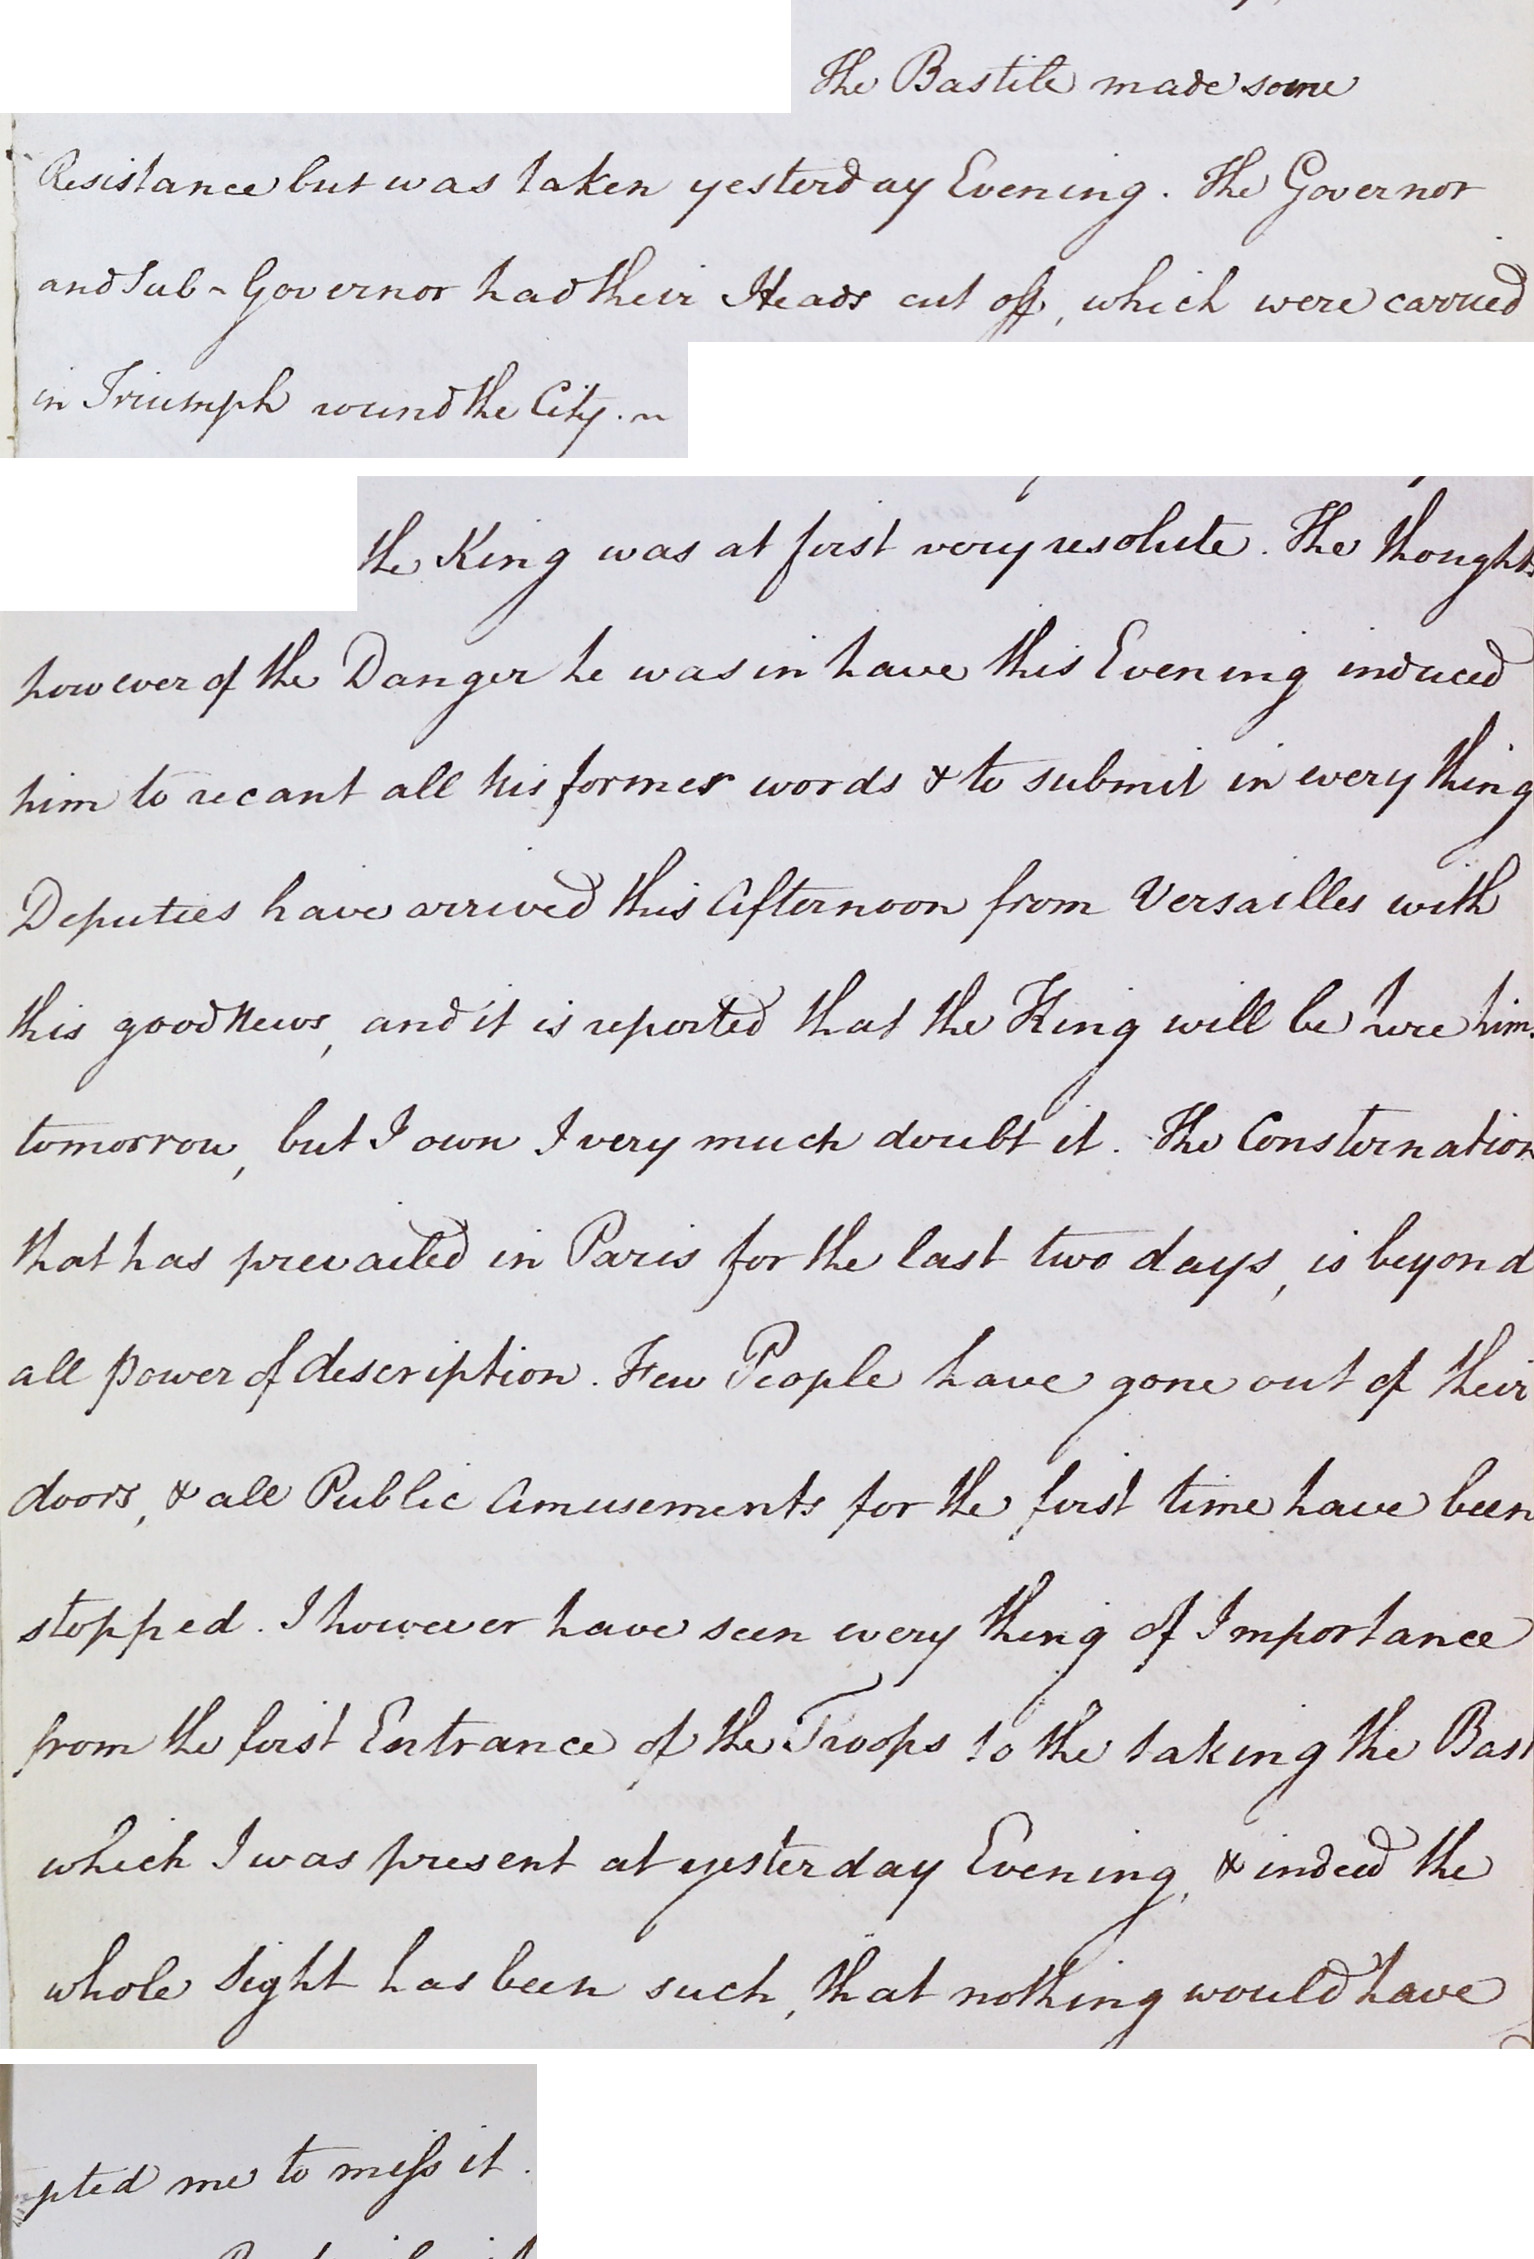 The Bastile made some
Resistance but was taken yesterday Evening. The Governor
and Sub-Governor had their Heads cut off, which were carried
in Triumph round the City. ~
the King was at first very resolute. The thoughts
however of the Danger he was in have this Evening induced
him to recant all his former words & to submit in every thing
Deputies have arrived this Afternoon from Versailles with
this good News, and it is reported that the King will be here him
tomorrow, but I own I very much doubt it. The Consternation
that has prevailed in Paris for the last two days, is beyond
all power of description. Few People have gone out of their
doors, & all Public Amusements for the first time have been
stopped. I however have seen every thing of Importance
from the first Entrance of the Troops to the taking the Bast
which I was present at yesterday Evening, & indeed the
whole Sight has been such, that nothing would have
pted me to miss it.